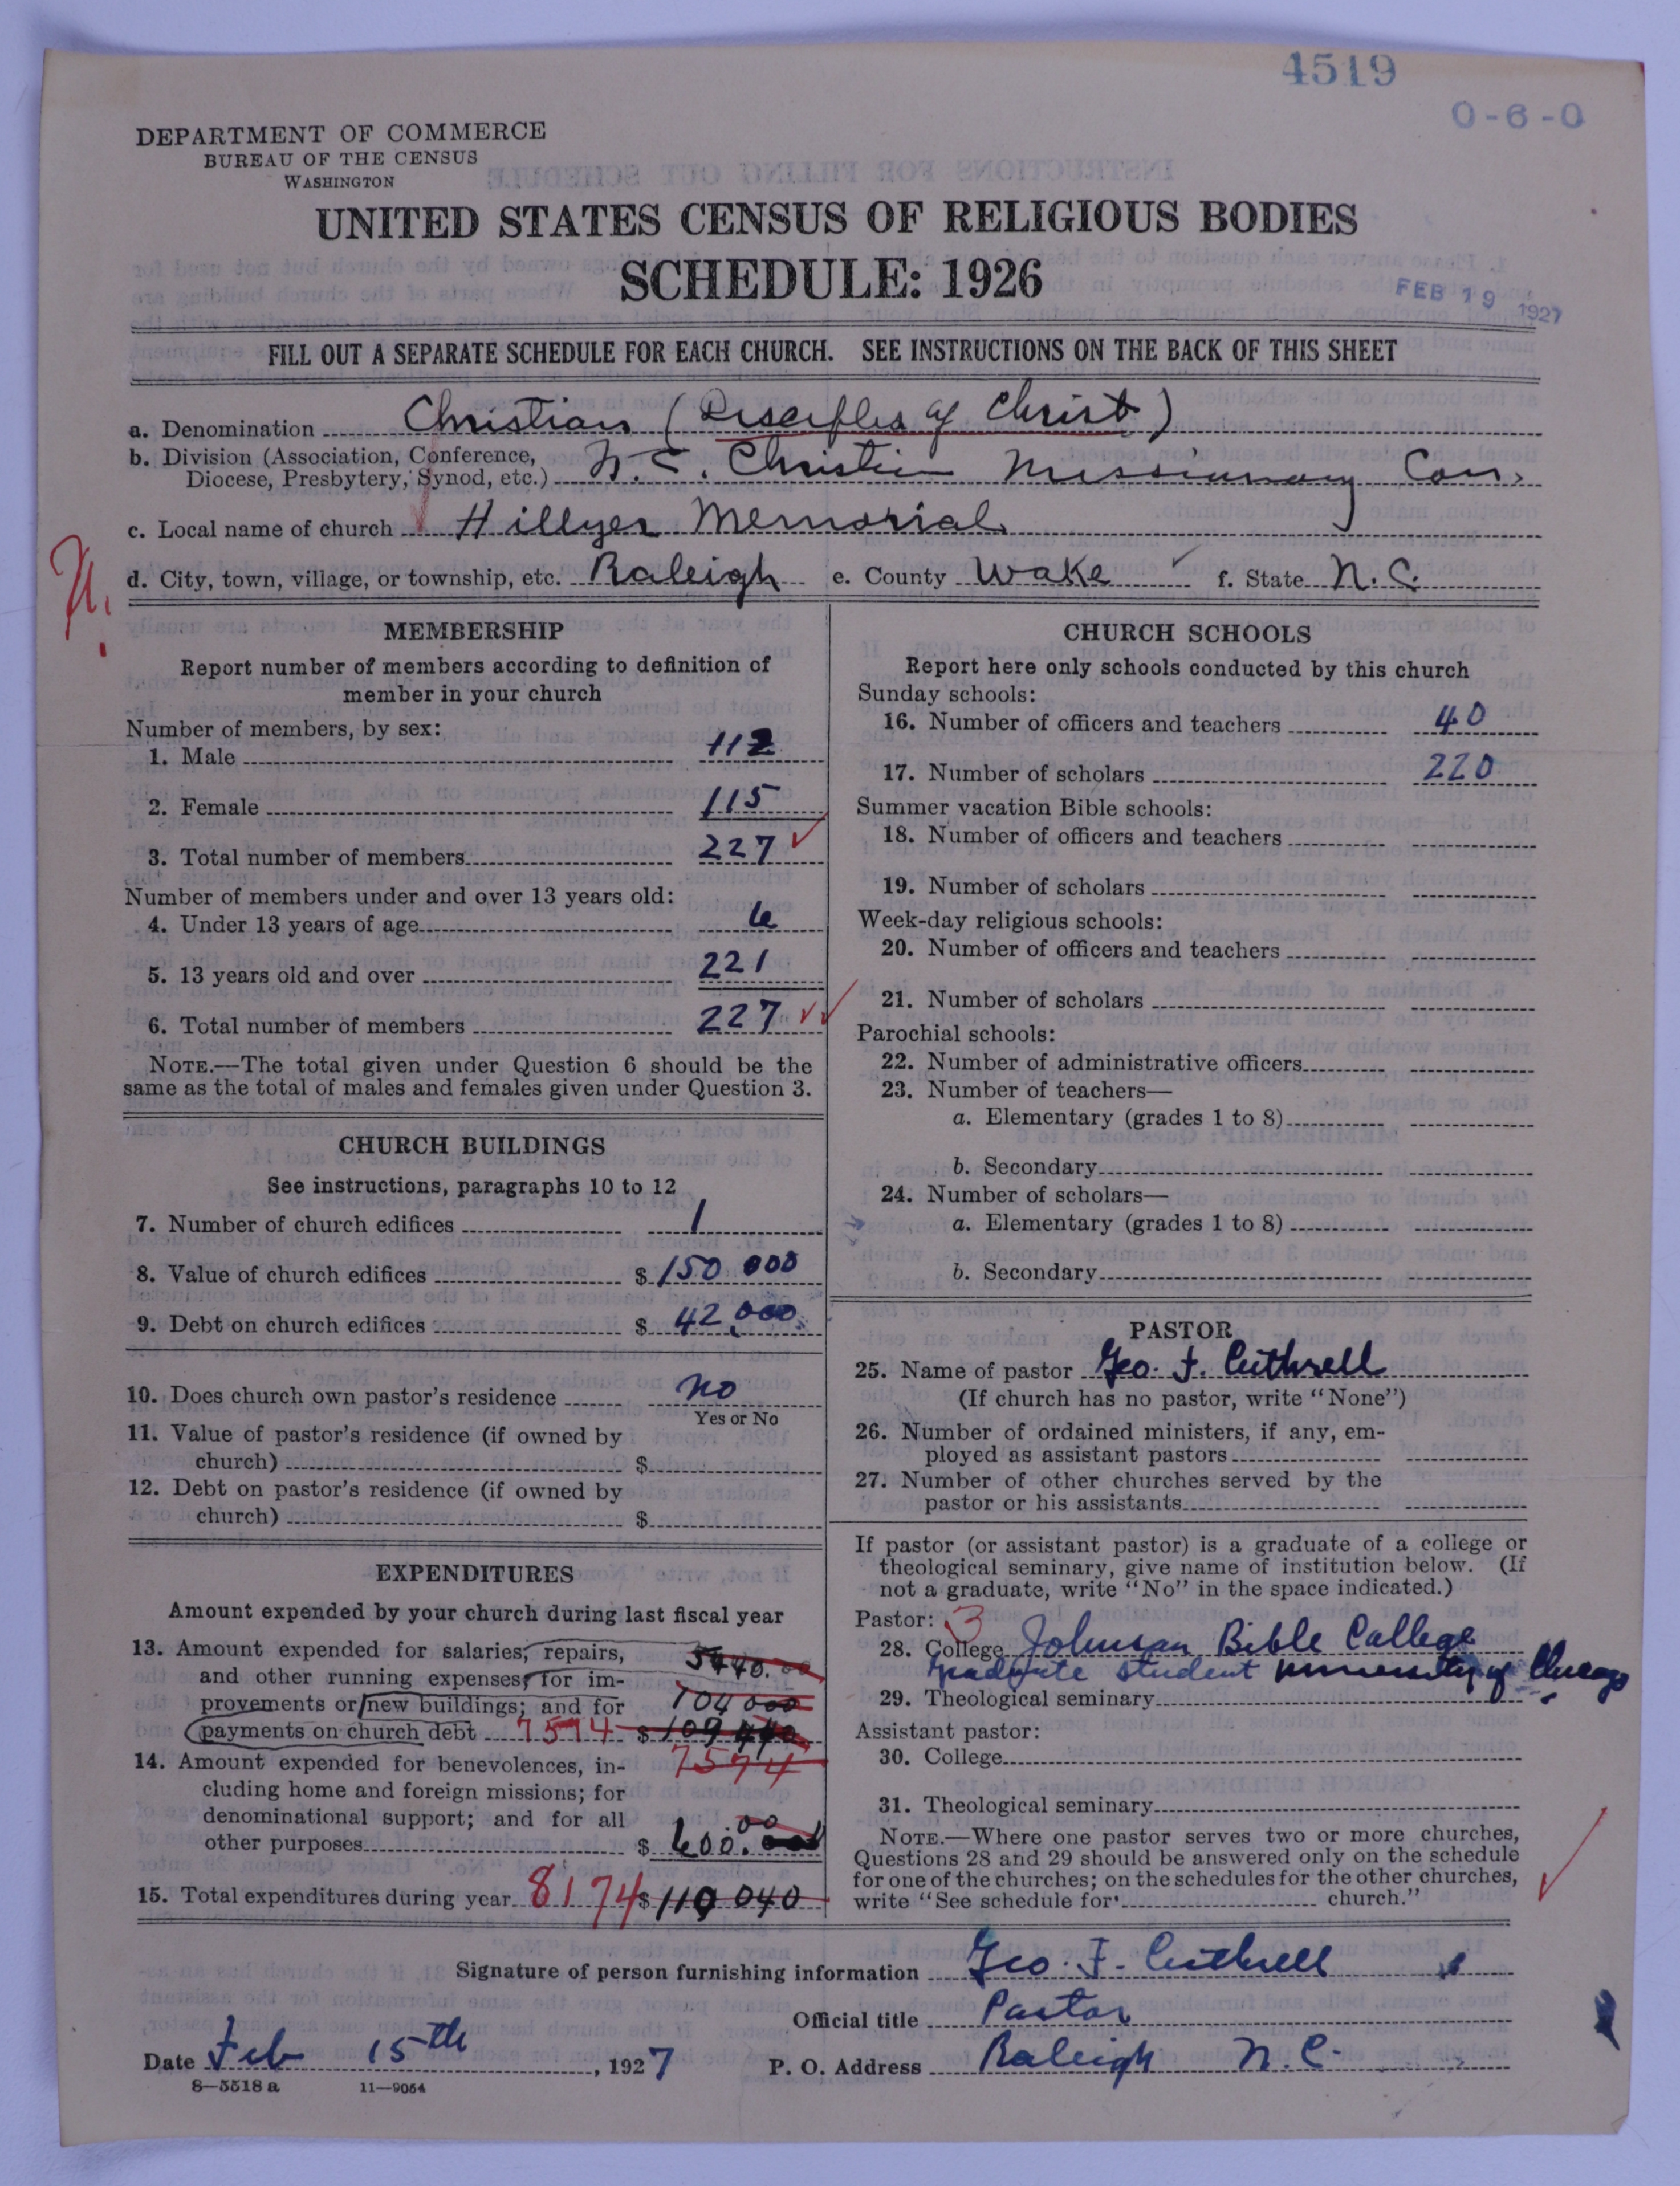 4519
0-6-0
DEPARTMENT OF COMMERCE
BUREAU OF THE CENSUS
WASHINGTON
UNITED STATES CENSUS OF RELIGIOUS BODIES
SCHEDULE: 1926
FEB 19 1927
FILL OUT A SEPARATE SCHEDULE FOR EACH CHURCH. SEE INSTRUCTIONS ON THE BACK OF THIS SHEET
a. Denomination Christian (Disciples of Christ)
b. Division (Association, Conference,
Diocese, Presbytery, Synod, etc.) N.C. Christian Missionary Con.
c. Local name of church Hillyer Memorial
d. City, town, village, or township, etc. Raleigh e. County Wake f. State N.C.
MEMBERSHIP
Report number of members according to definition of
member in your church
Number of members, by sex:
1. Male 112
2. Female 115
3. Total number of members 227
Number of members under and over 13 years old:
4. Under 13 years of age 6
5. 13 years old and over 221
6. Total number of members 227
NOTE.—The total given under Question 6 should be the
same as the total of males and females given under Question 3.
CHURCH BUILDINGS
See instructions, paragraphs 10 to 12
7. Number of church edifices 1
8. Value of church edifices $ 150 000
9. Debt on church edifices $ 42,000
10. Does church own pastor's residence no
Yes or No
11. Value of pastor's residence (if owned by
church) $
12. Debt on pastor's residence (if owned by
church) $
EXPENDITURES
Amount expended by your church during last fiscal year
13. Amount expended for salaries, repairs, 5440.00
and other running expenses; for im-
provements or new buildings; and for 104 000
payments on church debt 7574 $ 109 440
7574
14. Amount expended for benevolences, in-
cluding home and foreign missions; for
denominational support; and for all
other purposes $ 600.00
15. Total expenditures during year 8174 $ 110 040
CHURCH SCHOOLS
Report here only schools conducted by this church
Sunday schools:
16. Number of officers and teachers 40
17. Number of scholars 220
Summer vacation Bible schools:
18. Number of officers and teachers
19. Number of scholars
Week-day religious schools:
20. Number of officers and teachers
21. Number of scholars
Parochial schools:
22. Number of administrative officers
23. Number of teachers—
a. Elementary (grades 1 to 8)
b. Secondary
24. Number of scholars—
a. Elementary (grades 1 to 8)
b. Secondary
PASTOR
25. Name of pastor Geo. F. Cuthrell
(If church has no pastor, write "None")
26. Number of ordained ministers, if any, em-
ployed as assistant pastors
27. Number of other churches served by the
pastor or his assistants
If pastor (or assistant pastor) is a graduate of a college or
theological seminary, give name of institution below. (If
not a graduate, write "No" in the space indicated.)
Pastor: 3
28. College Johnson Bible College
Graduate student University of Chicago
29. Theological seminary
Assistant pastor:
30. College
31. Theological seminary
NOTE.—Where one pastor serves two or more churches,
Questions 28 and 29 should be answered only on the schedule
for one of the churches; on the schedules for the other churches,
write "See schedule for church."
Signature of person furnishing information Geo. F. Cuthrell
Official title Pastor
Date Feb 15th, 1927 P. O. Address Raleigh N.C.
8—5518 a 11—9054